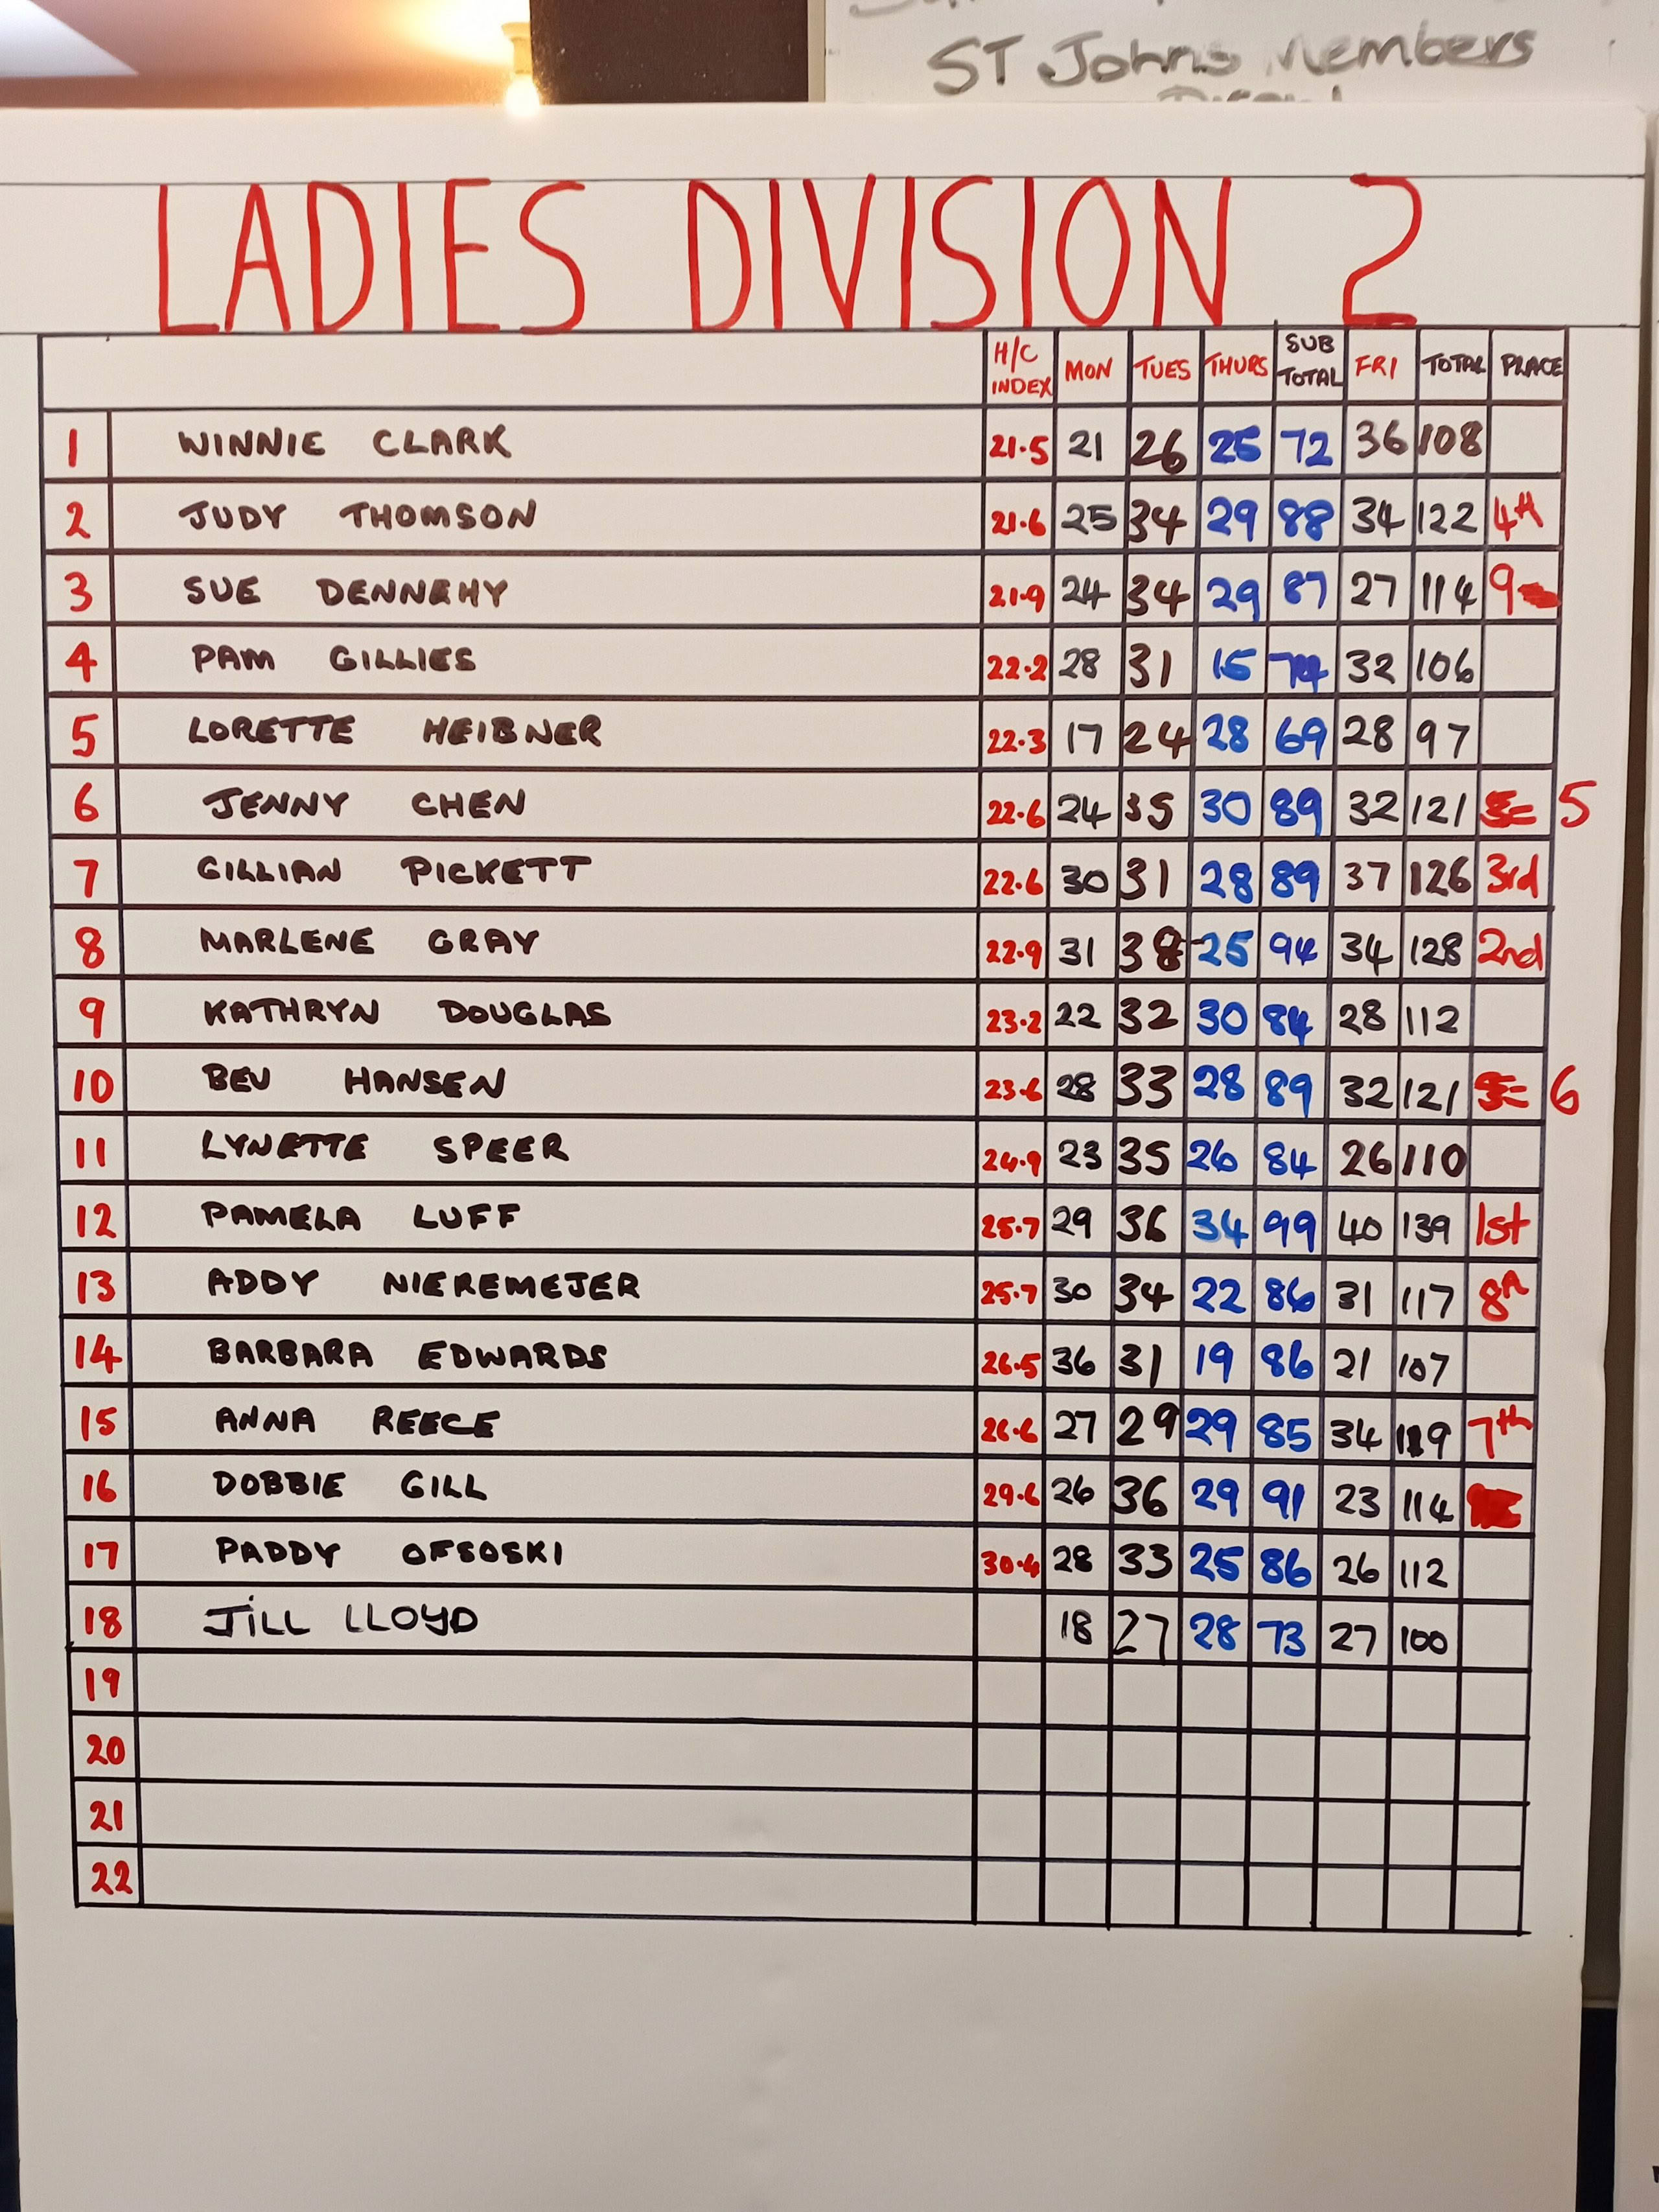 ST Johns Members
LADIES DIVISION 2
H/C INDEX MON TUES THURS SUB TOTAL FRI TOTAL PLACE
1 WINNIE CLARK 21.5 21 26 25 72 36 108
2 JUDY THOMSON 21.6 25 34 29 88 34 122 4th
3 SUE DENNEHY 21.9 24 34 29 87 27 114 9
4 PAM GILLIES 22.2 28 31 15 74 32 106
5 LORETTE HEIBNER 22.3 17 24 28 69 28 97
6 JENNY CHEN 22.6 24 35 30 89 32 121 5
7 GILLIAN PICKETT 22.6 30 31 28 89 37 126 3rd
8 MARLENE GRAY 22.9 31 38 25 94 34 128 2nd
9 KATHRYN DOUGLAS 23.2 22 32 30 84 28 112
10 BEV HANSEN 23.6 28 33 28 89 32 121 6
11 LYNETTE SPEER 24.9 23 35 26 84 26 110
12 PAMELA LUFF 25.7 29 36 34 99 40 139 1st
13 ADDY NIEREMEJER 25.7 30 34 22 86 31 117 8th
14 BARBARA EDWARDS 26.5 36 31 19 86 21 107
15 ANNA REECE 26.6 27 29 29 85 34 119 7th
16 DOBBIE GILL 29.6 26 36 29 91 23 114
17 PADDY OFSOSKI 30.4 28 33 25 86 26 112
18 JILL LLOYD 18 27 28 73 27 100
19
20
21
22